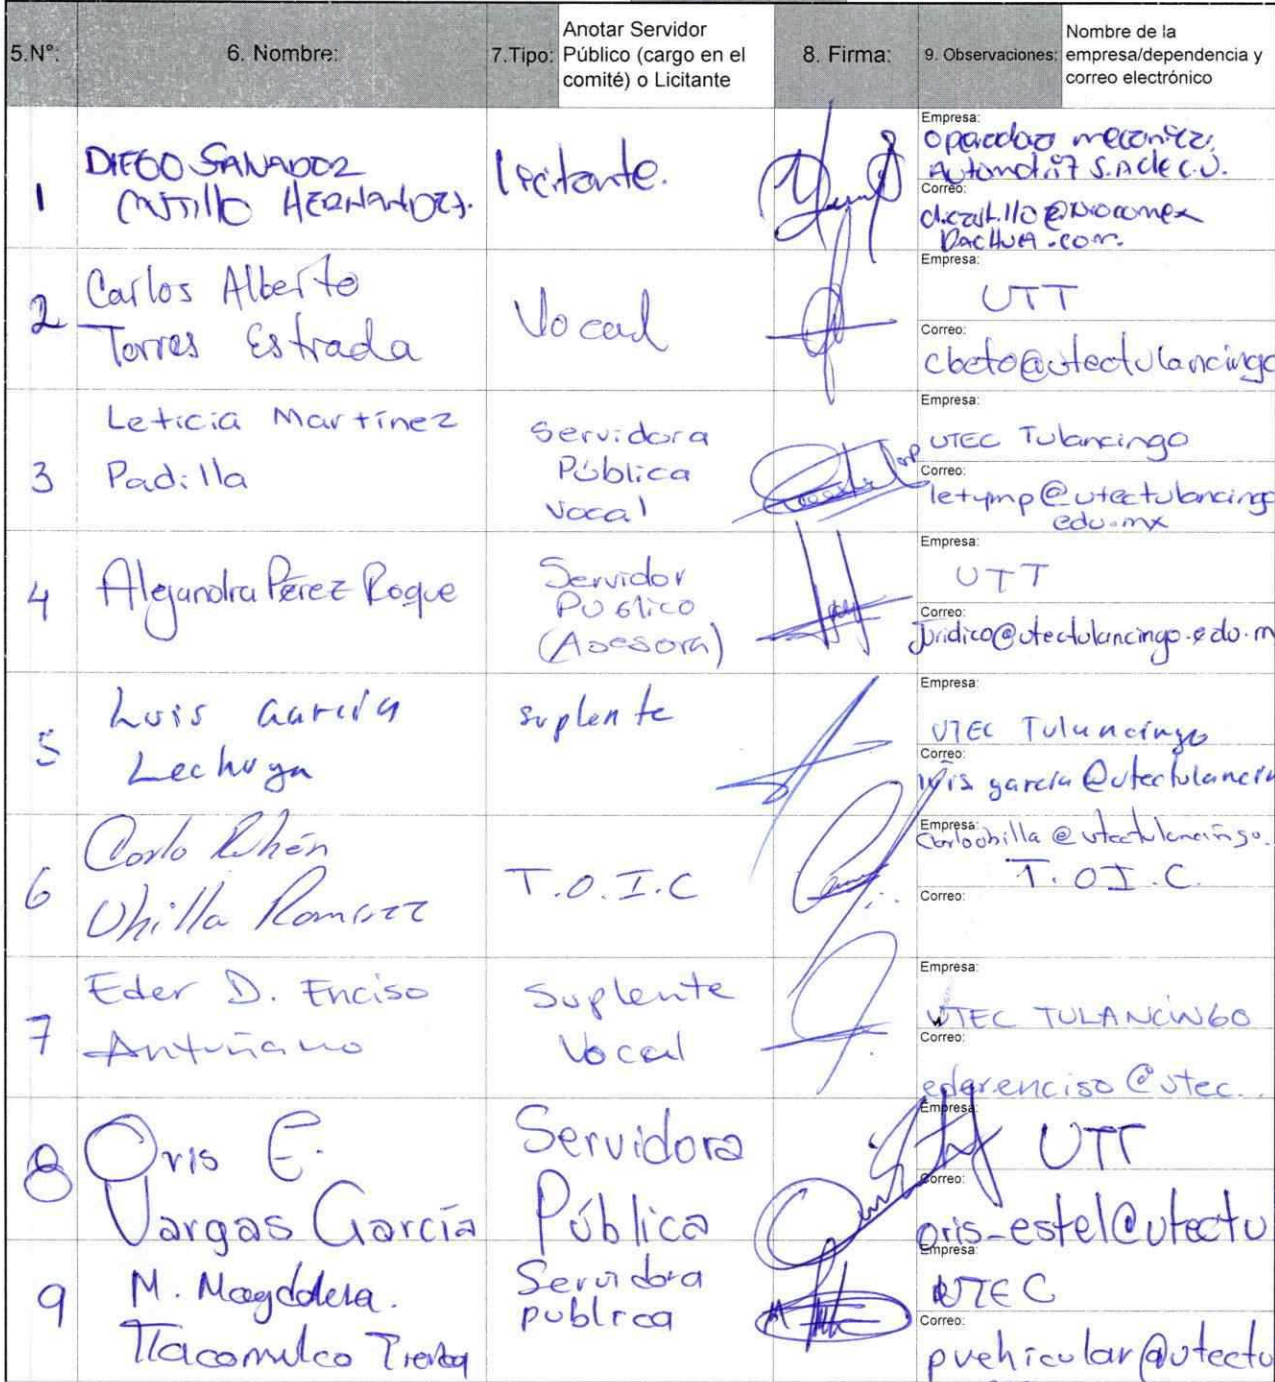 5.N°:
6. Nombre:
7.Tipo:
Anotar Servidor
Público (cargo en el
comité) o Licitante
8. Firma:
9. Observaciones:
Nombre de la
empresa/dependencia y
correo electrónico
1
DIEGO
HERNANDEZ.
licitante.
Empresa:
S.A de C.V.
Correo:
PACHUCA.com.
2
Carlos Alberto
Torres Estrada
Vocal
Empresa:
UTT
Correo:
cbeto@utectulancingo
3
Leticia Martínez
Padilla
Servidora
Pública
Vocal
Empresa:
UTEC Tulancingo
Correo:
letymp@utectulancingo
edu.mx
4
Alejandra Pérez Roque
Servidor
Público
(Asesora)
Empresa:
UTT
Correo:
juridico@utectulancingo.edu.m
5
Luis García
Lechuga
suplente
Empresa:
UTEC Tulancingo
Correo:
luis garcía @utectulancin
6
Ramírez
T.O.I.C
Empresa:
T.O.I.C.
Correo:
7
Eder D. Enciso
Antuñano
Suplente
Vocal
Empresa:
UTEC TULANCINGO
Correo:
eder.enciso@utec..
8
Oris E.
Vargas García
Servidora
Pública
Empresa:
UTT
Correo:
oris-estel@utectu
9
M. Magdalena.
Tlacomulco
Servidora
publica
Empresa:
UTEC
Correo:
pvehicular@utectu